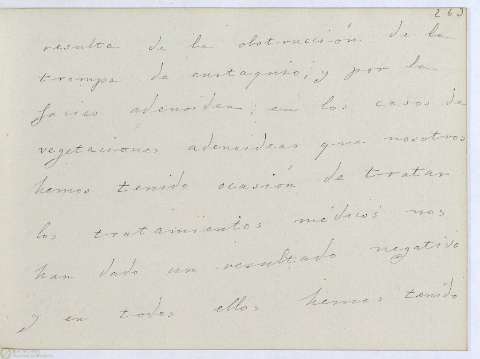 263
resulta de la obstrucción de la
trompa de eustaquio; y por la
facies adenoidea; en los casos de
vegetaciones adenoideas que nosotros
hemos tenido ocasión de tratar
los tratamientos médicos nos
han dado un resultado negativo
y en todos ellos hemos tenido